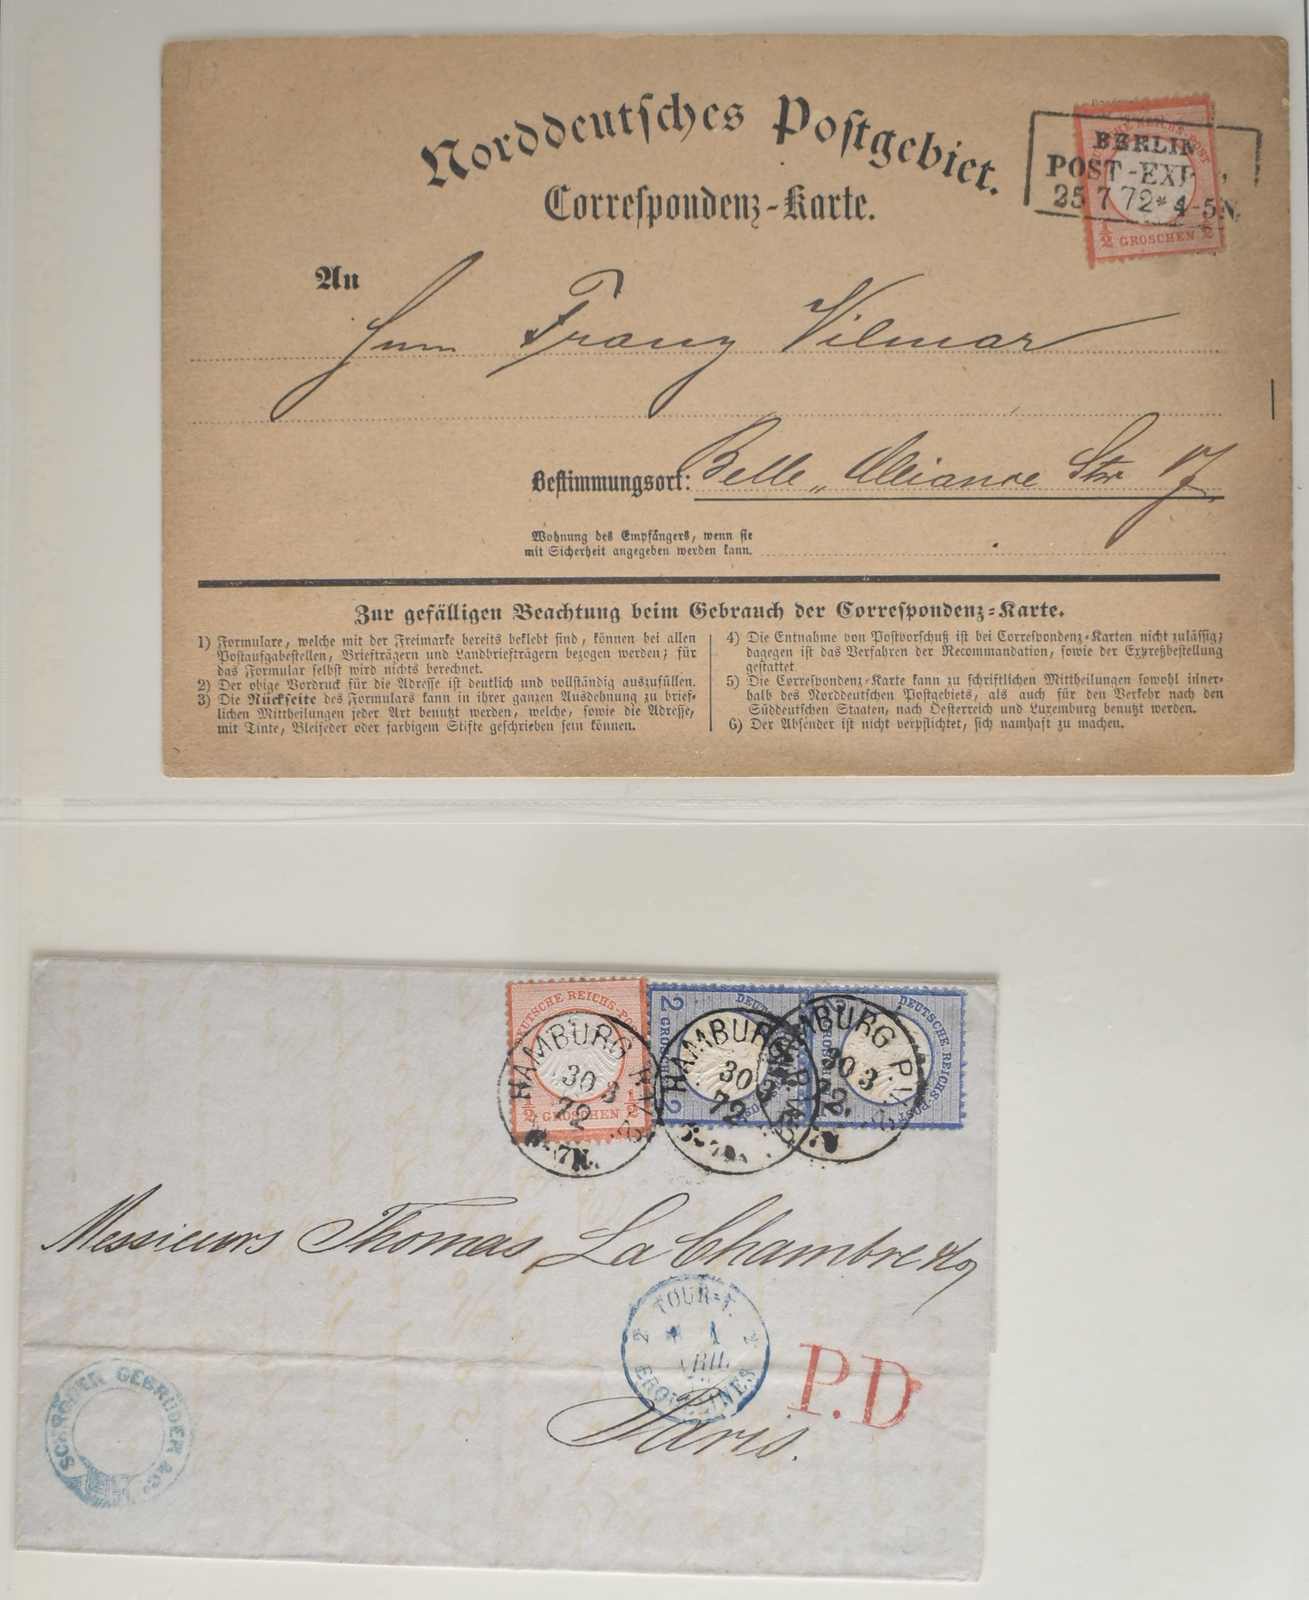 Norddeutsches Postgebiet.
Correspondenz-Karte.
BERLIN
POST-EXP
25 7 72 * 4-5N.
½ GROSCHEN ½
An
Herrn Franz Vilmar
Bestimmungsort: Belle Alliance Str 17
Wohnung des Empfängers, wenn sie
mit Sicherheit angegeben werden kann.
Zur gefälligen Beachtung beim Gebrauch der Correspondenz-Karte.
1) Formulare, welche mit der Freimarke bereits beklebt sind, können bei allen
Postaufgabestellen, Briefträgern und Landbriefträgern bezogen werden; für
das Formular selbst wird nichts berechnet.
2) Der obige Vordruck für die Adresse ist deutlich und vollständig auszufüllen.
3) Die Rückseite des Formulars kann in ihrer ganzen Ausdehnung zu brief-
lichen Mittheilungen jeder Art benutzt werden, welche, sowie die Adresse,
mit Tinte, Bleifeder oder farbigem Stifte geschrieben sein können.
4) Die Entnahme von Postvorschuß ist bei Correspondenz-Karten nicht zulässig;
dagegen ist das Verfahren der Recommandation, sowie der Expreßbestellung
gestattet.
5) Die Correspondenz-Karte kann zu schriftlichen Mittheilungen sowohl inner-
halb des Norddeutschen Postgebiets, als auch für den Verkehr nach den
Süddeutschen Staaten, nach Oesterreich und Luxemburg benutzt werden.
6) Der Absender ist nicht verpflichtet, sich namhaft zu machen.
DEUTSCHE REICHS-POST
½ GROSCHEN ½
HAMBURG
30 3
72
DEUTSCHE REICHS-POST
2 2
HAMBURG
30 3
72
DEUTSCHE REICHS-POST
HAMBURG
30 3
72
Messieurs Thomas La Chambre & Co
TOUR-T.
2 1 2
AVRIL
ERQUELINES
P.D
Paris.
SCHRÖDER GEBRÜDER & Co.